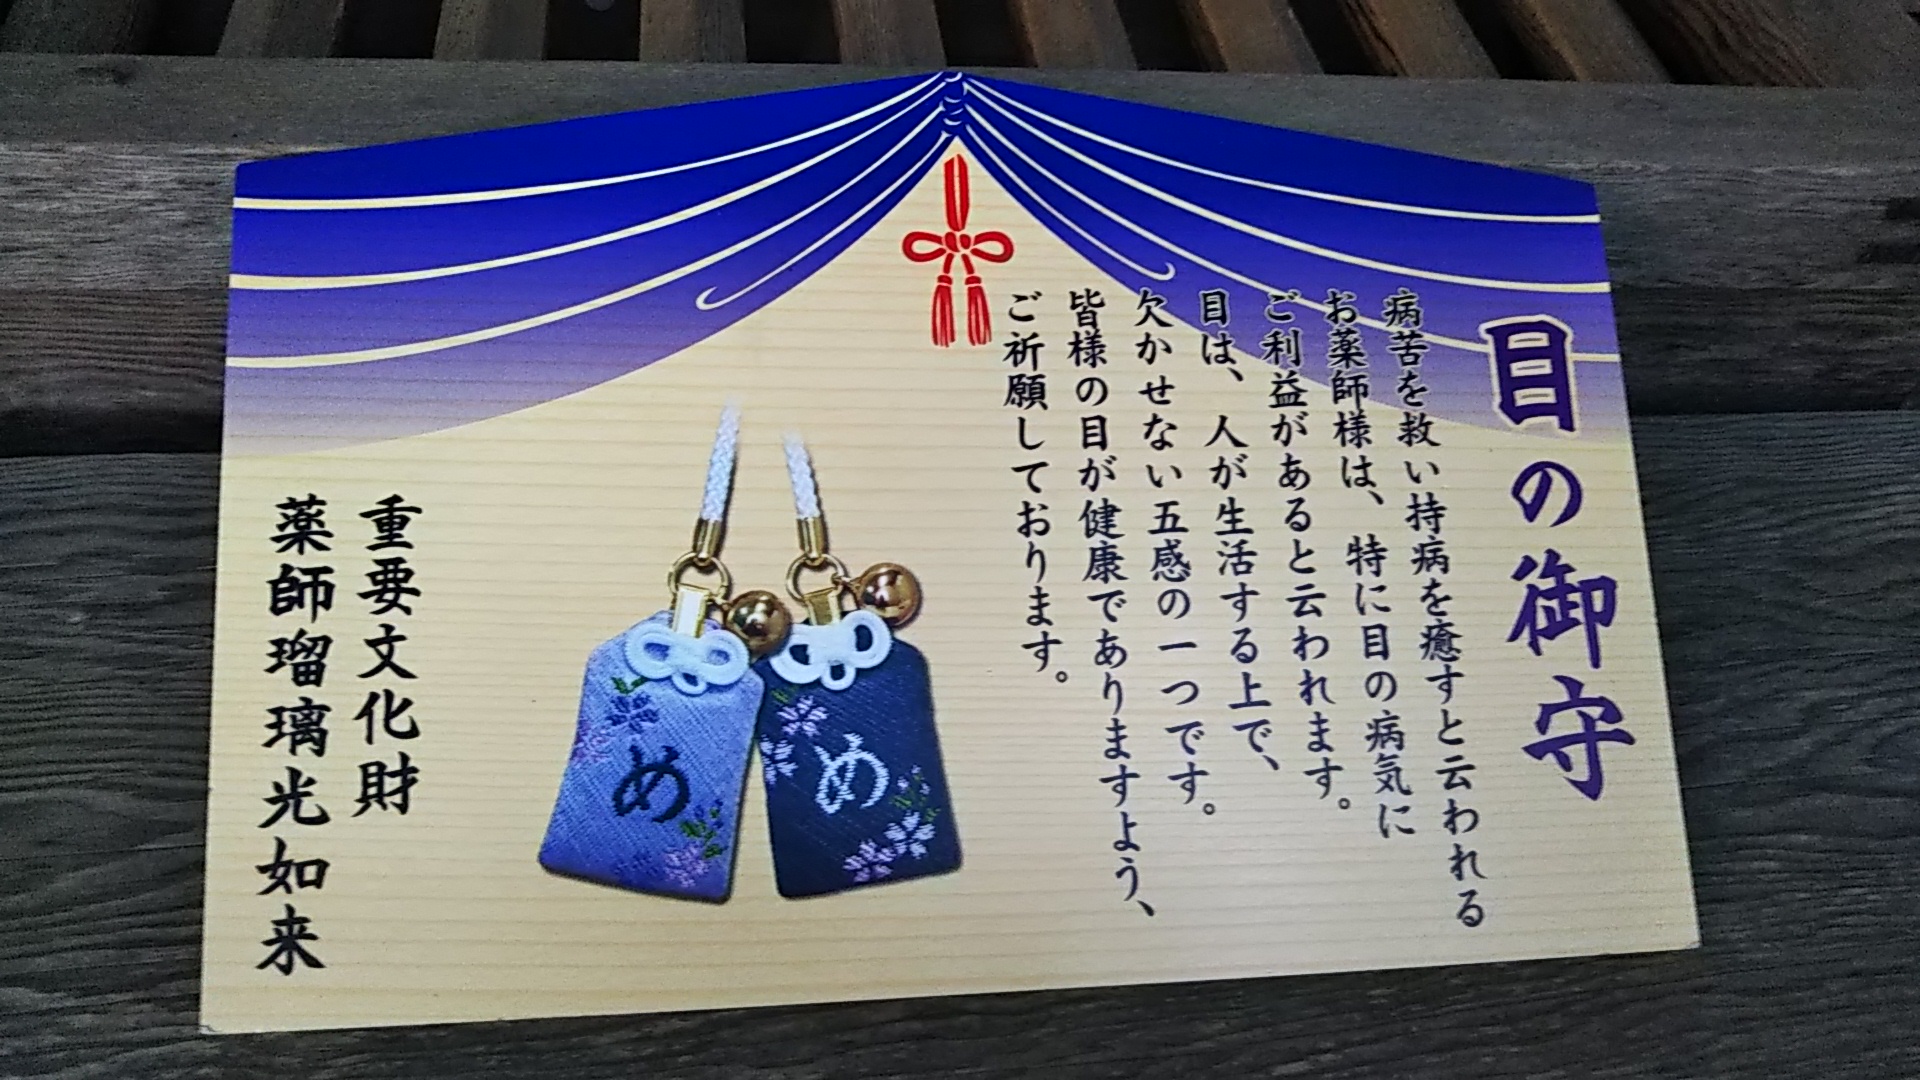 目の御守
病苦を救い持病を癒すと云われる
お薬師様は、特に目の病気に
ご利益があると云われます。
目は、人が生活する上で、
欠かせない五感の一つです。
皆様の目が健康でありますよう、
ご祈願しております。
め
め
重要文化財
薬師瑠璃光如来